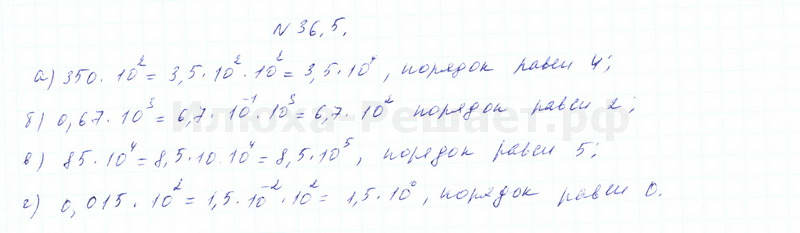 №36.5.
а) 350·10² = 3,5·10²·10² = 3,5·10⁴, порядок равен 4;
б) 0,67·10³ = 6,7·10⁻¹·10³ = 6,7·10² порядок равен 2;
в) 85·10⁴ = 8,5·10·10⁴ = 8,5·10⁵, порядок равен 5;
г) 0,015·10² = 1,5·10⁻²·10² = 1,5·10⁰, порядок равен 0.
Илюха-Решает.рф